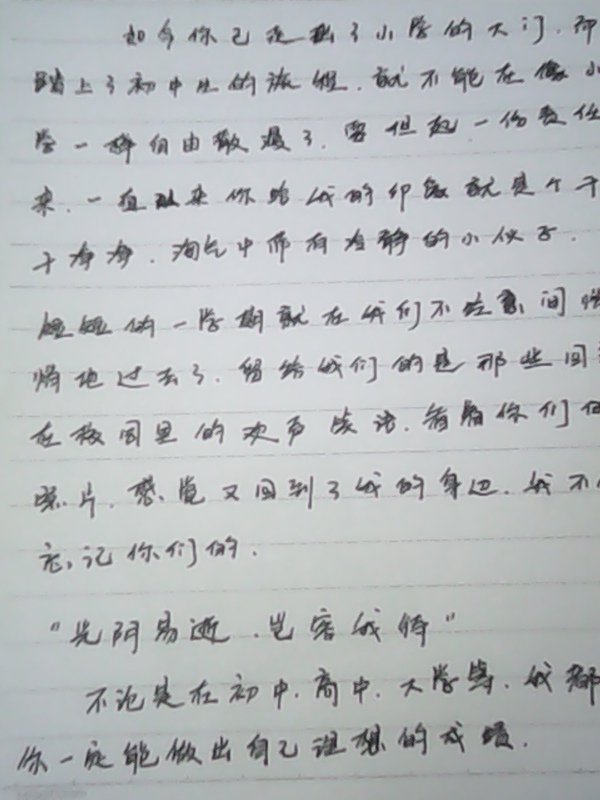 如今你已走出了小学的大门,即
踏上了初中生的旅程.就不能在像小
学一样自由散漫了.要担起一份责任
来.一直以来你给我的印象就是个干
干净净.淘气中带有冷静的小伙子.
短短的一学期就在我们不经意间悄
悄地过去了.留给我们的是那些回荡
在校园里的欢声笑语.看着你们的
照片.感觉又回到了我的身边.我不
忘记你们的.
"光阴易逝.岂容我待"
不论是在初中.高中.大学等.我都
你一定能做出自己理想的成绩.